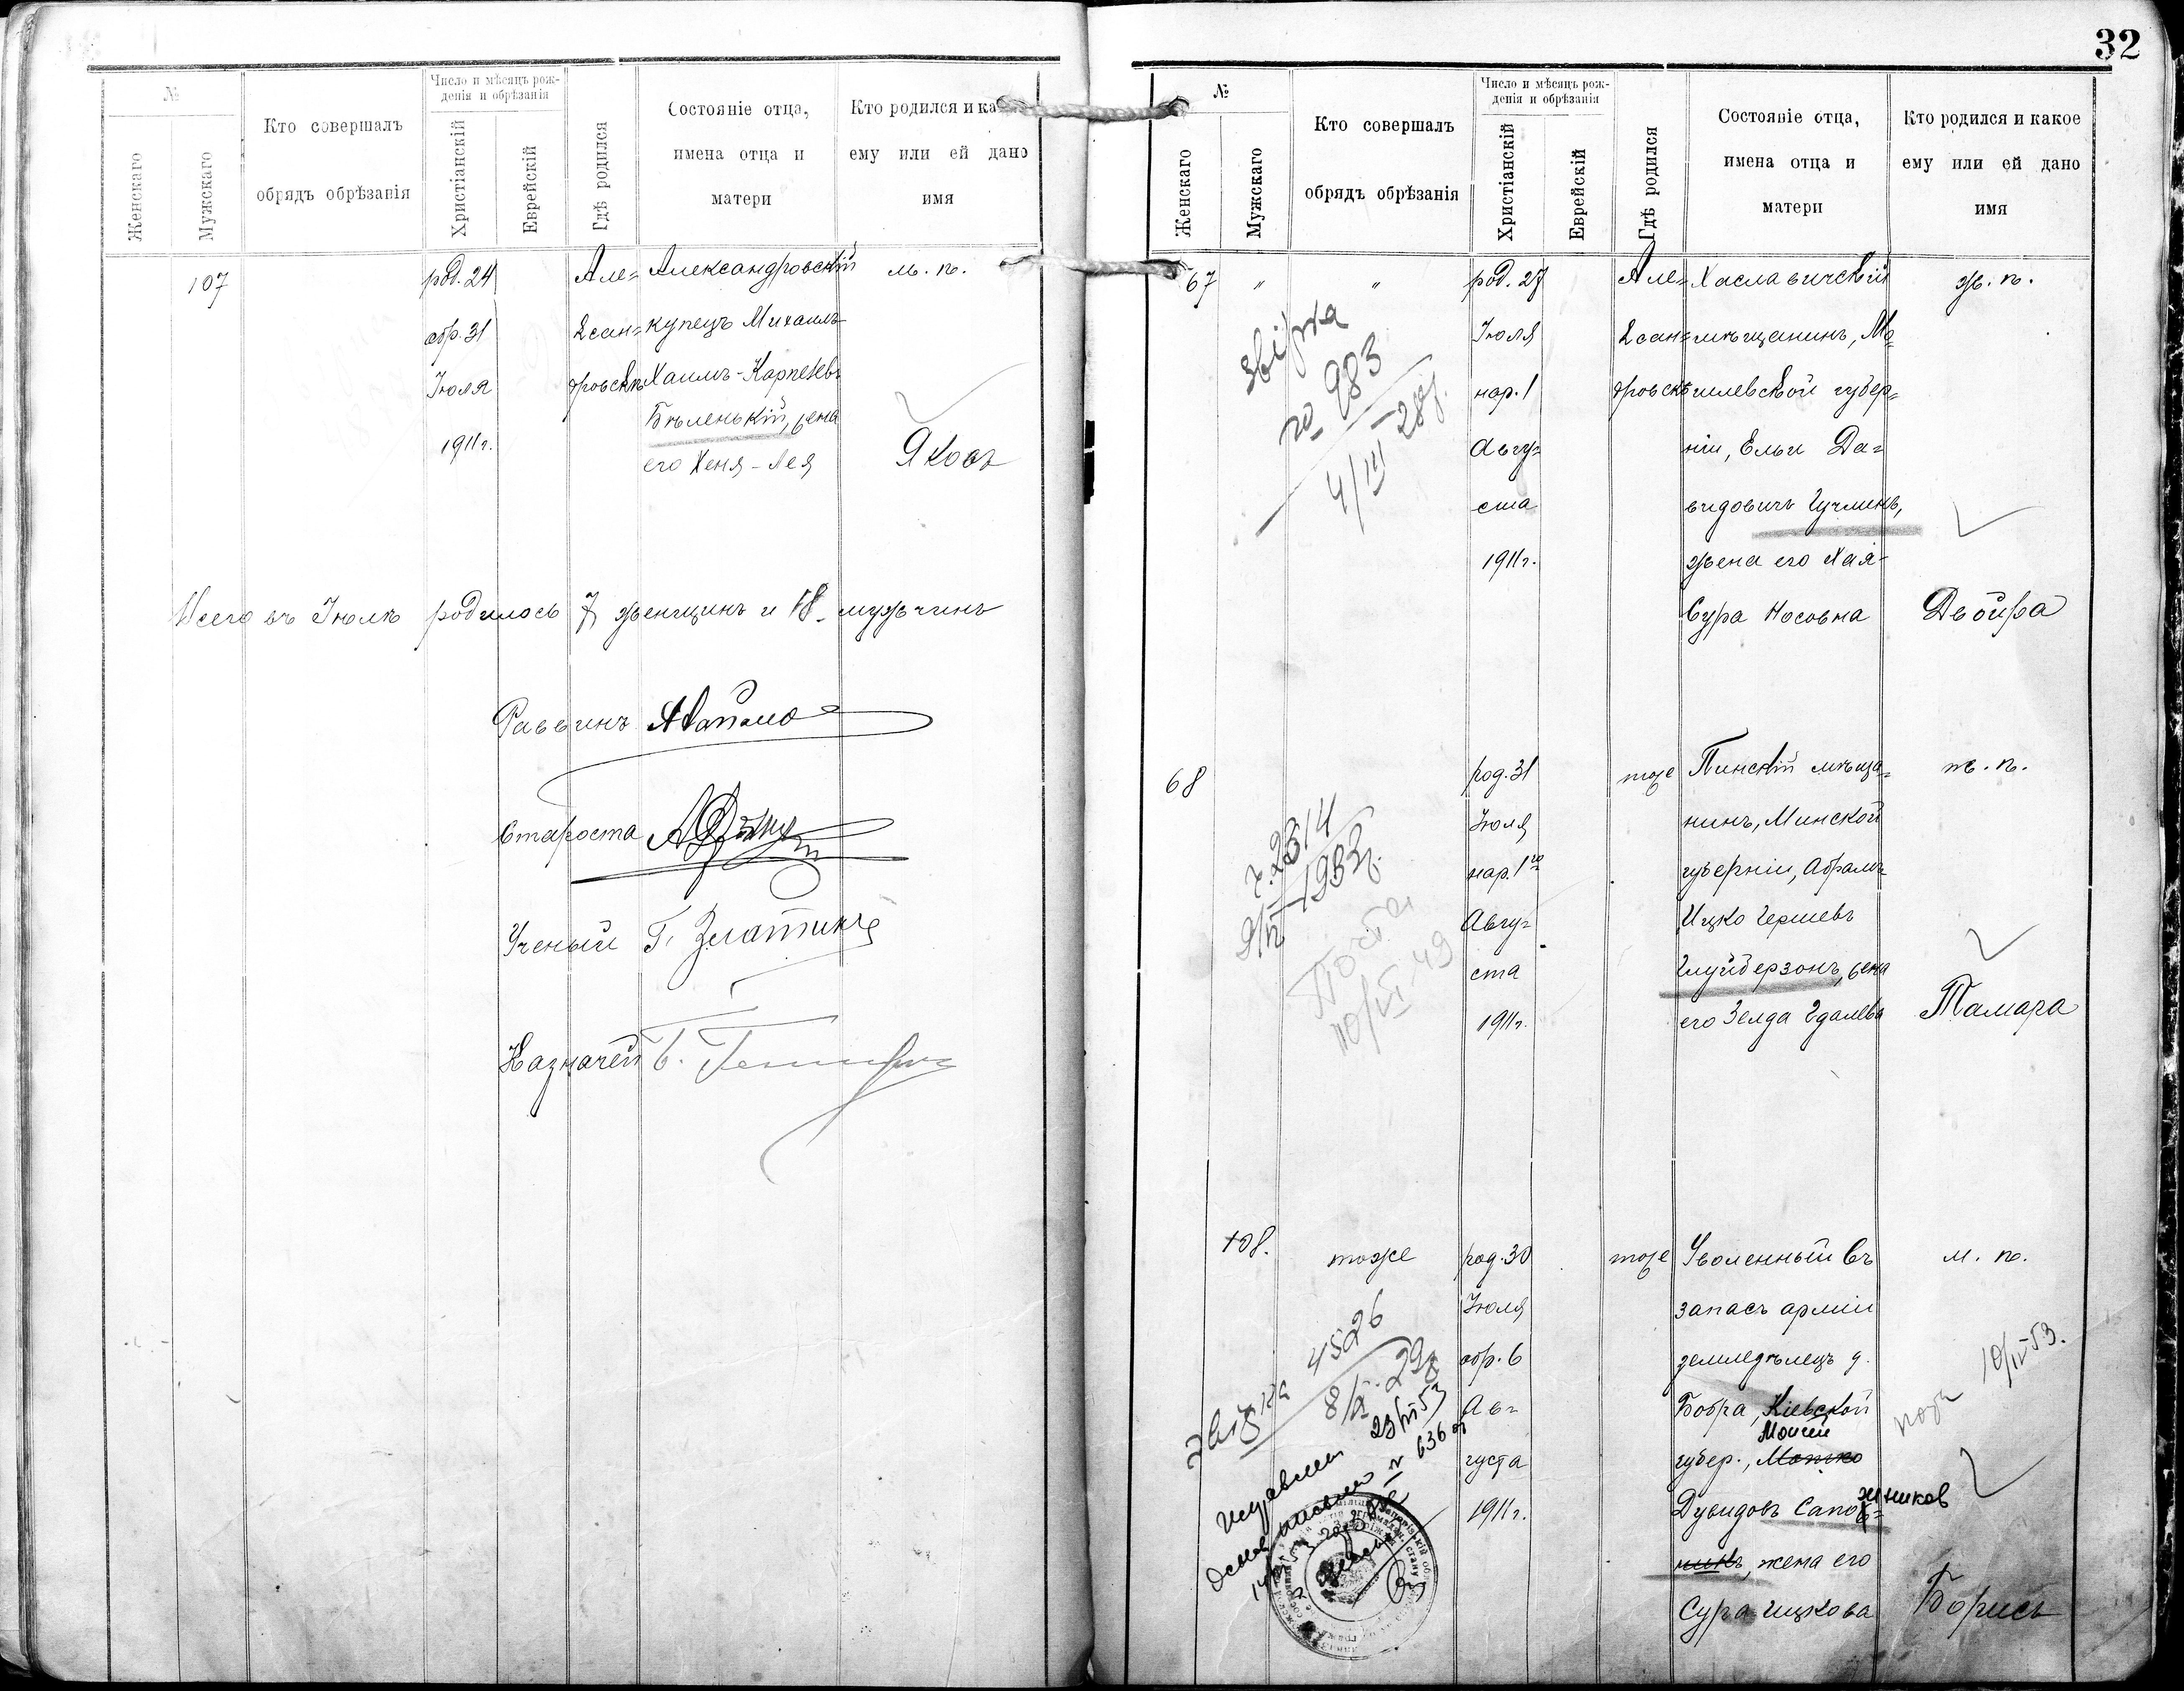 №
Женскаго
Мужскаго
Кто совершалъ
обрядъ обрѣзанія
Число и мѣсяцъ рож-
денія и обрѣзанія
Христіанскій
Еврейскій
Гдѣ родился
Состояніе отца,
имена отца и
матери
Кто родился и ка
ему или ей дано
имя
107
род. 24
обр. 31
Іюля
1911 г.
Але=
ксан=
дровскъ
Александровскій
купецъ Михаилъ
Хаимъ-Карпелевъ
Бѣленькій, жена
его Хеня-Лея
м. п.
Яковъ
Всего въ Іюлѣ родилось 7 женщинъ и 18 мужчинъ
Раввинъ
Староста
Ученый Г. Златинъ
Казначей
32
№
Женскаго
Мужскаго
Кто совершалъ
обрядъ обрѣзанія
Число и мѣсяцъ рож-
денія и обрѣзанія
Христіанскій
Еврейскій
Гдѣ родился
Состояніе отца,
имена отца и
матери
Кто родился и какое
ему или ей дано
имя
67
"
"
звірка
по 983
4/III 28р.
род. 27
Іюля
нар. 1
Авгу=
ста
1911 г.
Але=
ксан=
дровскъ
Хаславичскій
мѣщанинъ, Мо=
гилевской губер=
ніи, Ельи Да=
видовичъ Гучминъ,
жена его Хая-
Сура Носовна
ж. п.
Двойра
68
ч. 2314
1933г.
10/VI 49
род. 31
Іюля
нар. 1го
Авгу=
ста
1911 г.
тоже
Пинскій мѣща=
нинъ, Минской
губерніи, Абрамъ-
Ицко Гершевъ
Глуйберзонъ, жена
его Зелда Гдалева
ж. п.
Тамара
108.
тоже
звірка 4526
8/X. 29р
23/VI 53
N 636
род. 30
Іюля
обр. 6
Ав=
густа
1911 г.
тоже
Уволенный въ
запасъ арміи
земледѣлецъ д.
Бобра, Кіевской
Моисей
губер., Мошко
Дувидовъ Сапожников
никъ, жена его
Сура Ицкова
м. п.
10/IV 53.
Борисъ